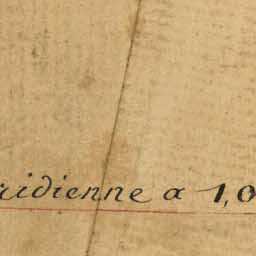 ridienne a 1,0